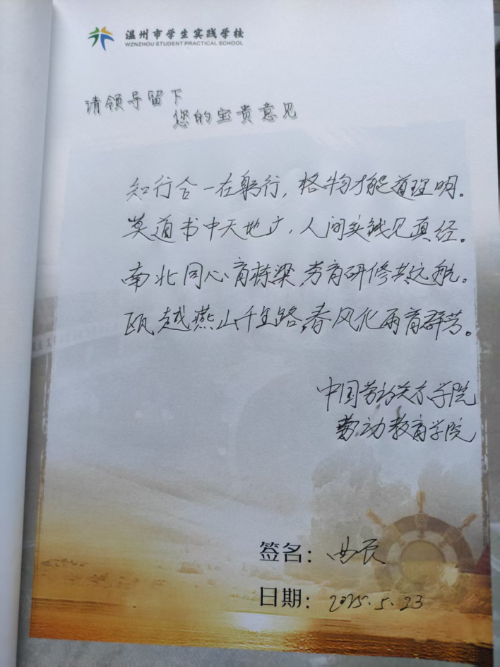 温州市学生实践学校
WENZHOU STUDENT PRACTICAL SCHOOL
请领导留下
您的宝贵意见
知行合一在躬行，格物才能道理明。
莫道书中天地广，人间实践见真经。
南北同心育栋梁，劳育研修共远航。
瓯越燕山千里路，春风化雨育群芳。
中国劳动关系学院
劳动教育学院
签名：曲辰
日期：2025.5.23